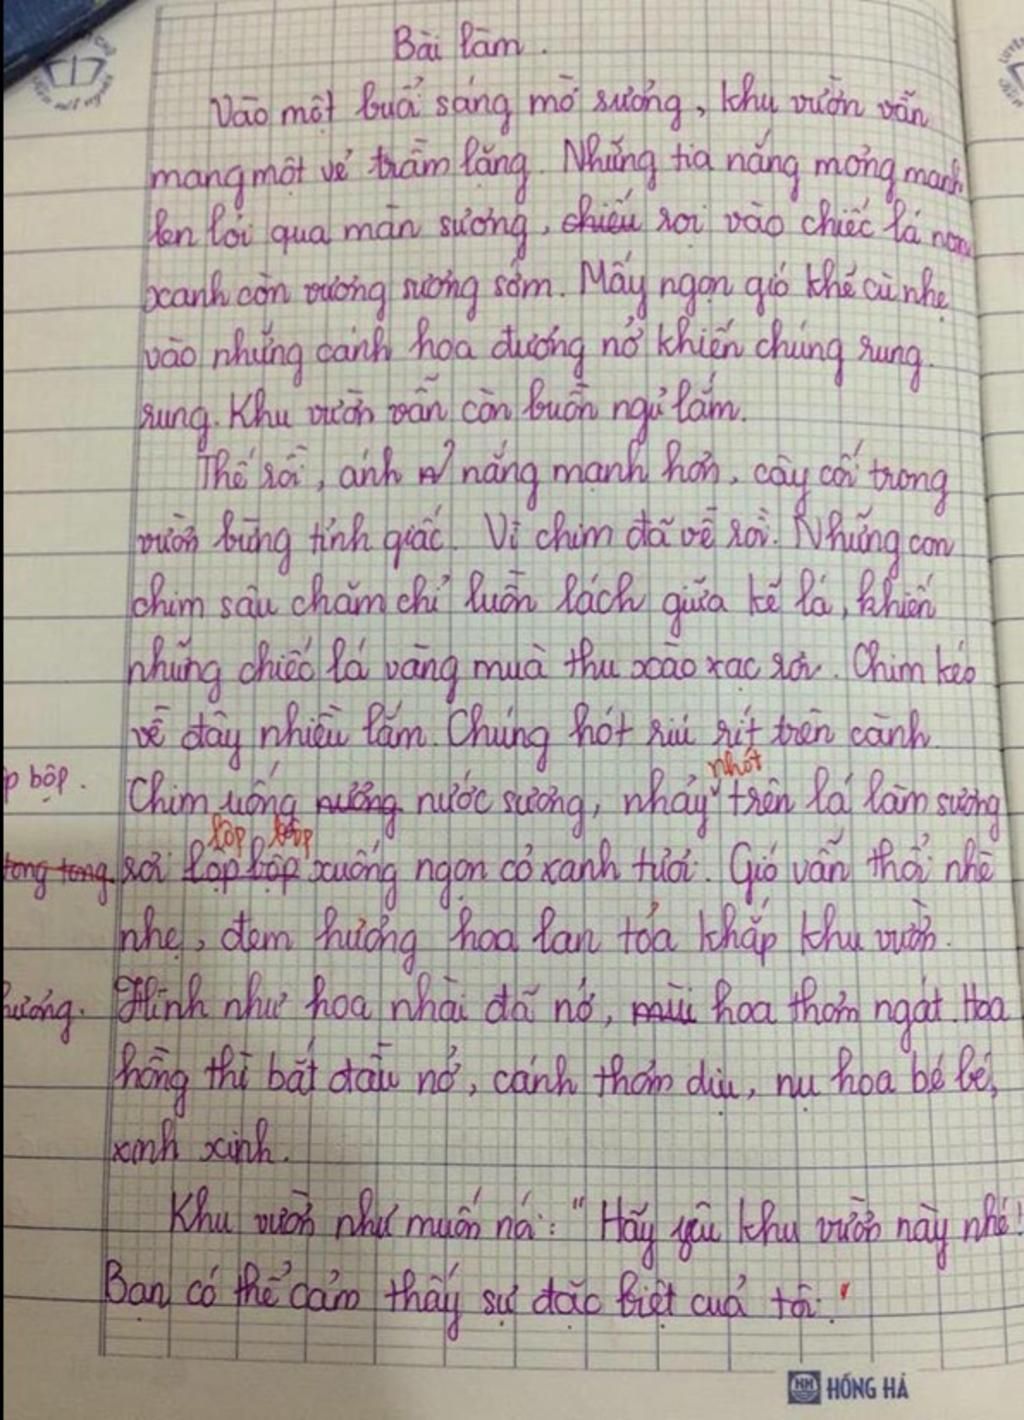 Bài làm.
Vào một buổi sáng mờ sương, khu vườn vẫn
mang một vẻ trầm lặng. Những tia nắng mỏng manh
len lỏi qua màn sương, chiếu rọi vào chiếc lá non
xanh còn vương sương sớm. Mấy ngọn gió khẽ cù nhẹ
vào những cánh hoa đương nở khiến chúng rung
rung. Khu vườn vẫn còn buồn ngủ lắm.
Thế rồi, ánh nắng mạnh hơn, cây cối trong
vườn bừng tỉnh giấc. Vì chim đã về rồi. Những con
chim sâu chăm chỉ luồn lách giữa kẽ lá, khiến
những chiếc lá vàng mùa thu xào xạc rơi. Chim kéo
về đây nhiều lắm. Chúng hót ríu rít trên cành.
p bộp.
nhót
Chim uống nước sương, nhảy trên lá làm sương
lộp bộp
tong tong. rơi lộp bộp xuống ngọn cỏ xanh tươi. Gió vẫn thổi nhè
nhẹ, đem hương hoa lan tỏa khắp khu vườn.
hương. Hình như hoa nhài đã nở, mùi hoa thơm ngát. Hoa
hồng thì bắt đầu nở, cánh thơm dịu, nụ hoa bé bé,
xinh xinh.
Khu vườn như muốn nói: "Hãy yêu khu vườn này nhé!
Bạn có thể cảm thấy sự đặc biệt của tôi."
HỒNG HÀ